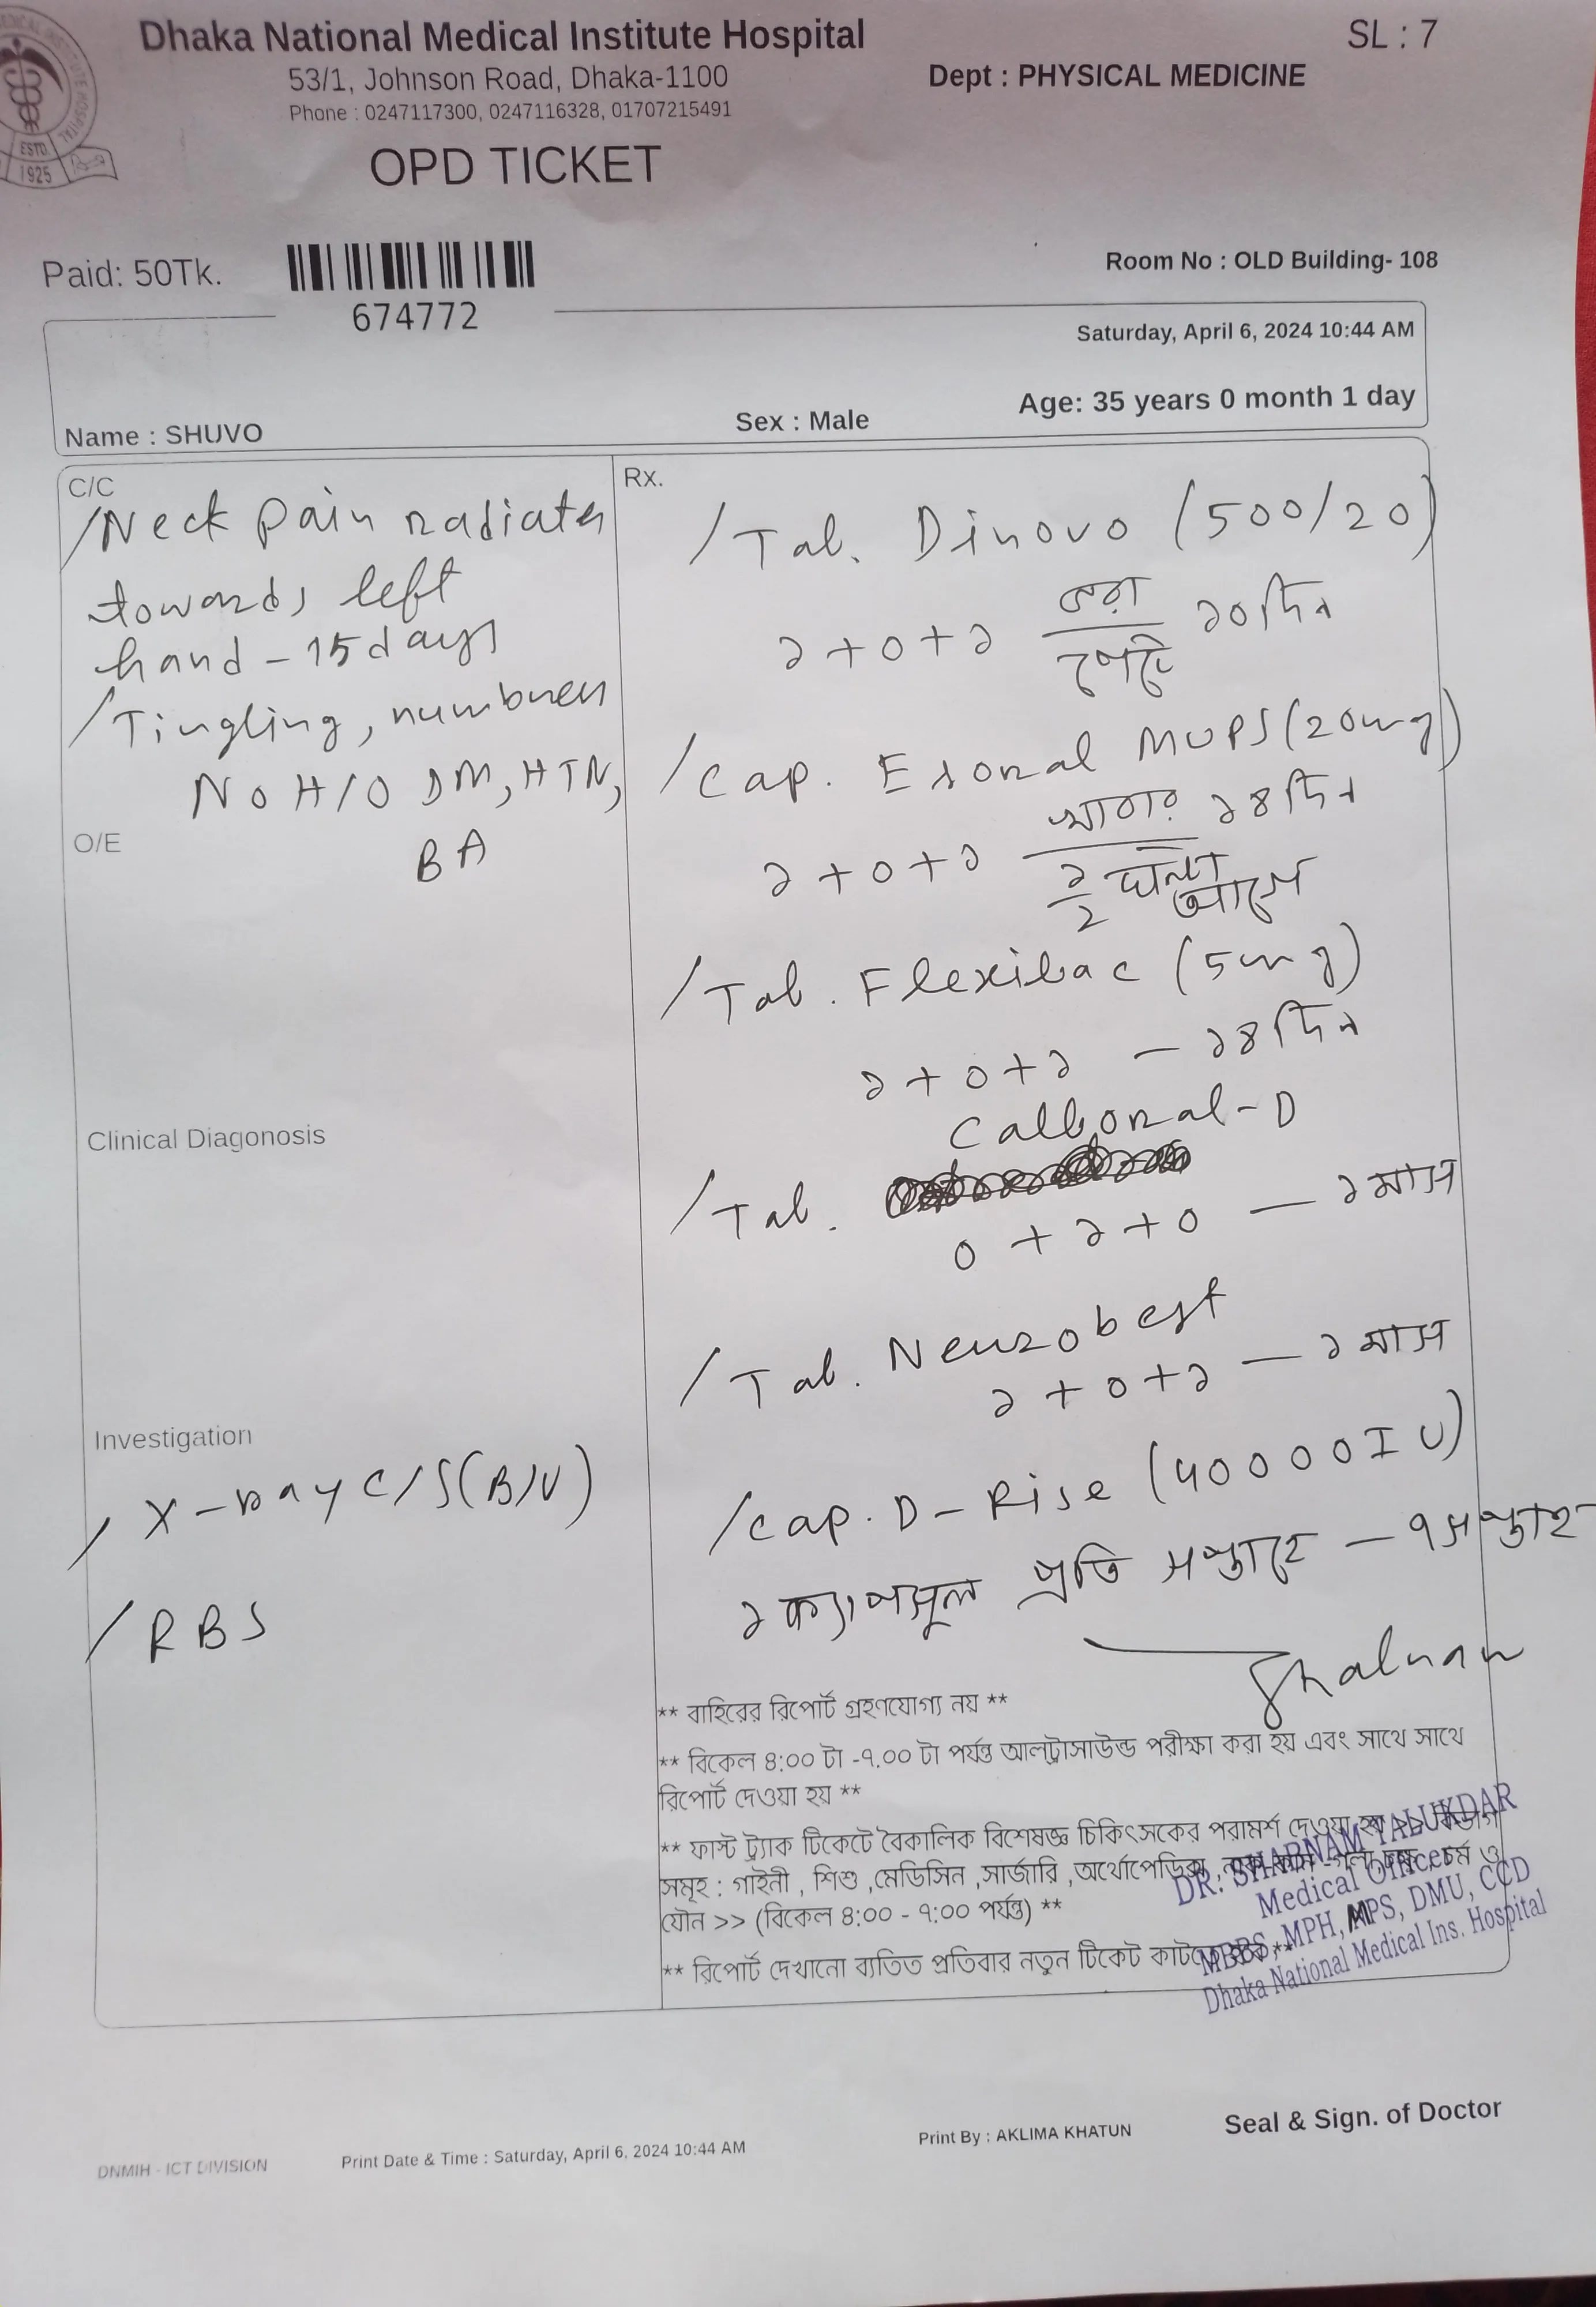 Dhaka National Medical Institute Hospital
SL : 7
53/1, Johnson Road, Dhaka-1100
Dept : PHYSICAL MEDICINE
Phone : 0247117300, 0247116328, 01707215491
ESTD.
1925
OPD TICKET
Paid: 50Tk.
674772
Room No : OLD Building- 108
Saturday, April 6, 2024 10:44 AM
Name : SHUVO
Sex : Male
Age: 35 years 0 month 1 day
C/C
/ Neck pain radiates
towards left
hand - 15 days
/ Tingling, numbness
No H/O DM, HTN,
BA
O/E
Clinical Diagonosis
Investigation
/ X-ray C/S (B/V)
/ RBS
Rx.
/ Tab. Dinovo (500/20)
১+০+১ ভরা পেটে ১০ দিন
/ Cap. Exonal MUPS (20mg)
১+০+১ খাবার ১/২ ঘন্টা আগে ১৪ দিন
/ Tab. Flexibac (5mg)
১+০+১ — ১৪ দিন
Calbonal-D
/ Tab.
০+১+০ — ১ মাস
/ Tab. Neurobest
১+০+১ — ১ মাস
/ Cap. D-Rise (40000 IU)
১ ক্যাপসুল প্রতি সপ্তাহে — ৭ সপ্তাহ
** বাহিরের রিপোর্ট গ্রহণযোগ্য নয় **
** বিকেল ৪:০০ টা -৭.০০ টা পর্যন্ত আলট্রাসাউন্ড পরীক্ষা করা হয় এবং সাথে সাথে
রিপোর্ট দেওয়া হয় **
** ফাস্ট ট্র্যাক টিকেটে বৈকালিক বিশেষজ্ঞ চিকিৎসকের পরামর্শ দেওয়া হয় >> বিভাগ
সমূহ : গাইনী , শিশু ,মেডিসিন ,সার্জারি ,অর্থোপেডিক্স , নাক-কান -গলা চর্ম ও
যৌন >> (বিকেল ৪:০০ - ৭:০০ পর্যন্ত) **
** রিপোর্ট দেখানো ব্যতিত প্রতিবার নতুন টিকেট কাটতে হবে **
DR. SHABNAM TALUKDAR
Medical Officer
MBBS, MPH, MPS, DMU, CCD
Dhaka National Medical Ins. Hospital
Seal & Sign. of Doctor
DNMIH - ICT DIVISION
Print Date & Time : Saturday, April 6, 2024 10:44 AM
Print By : AKLIMA KHATUN